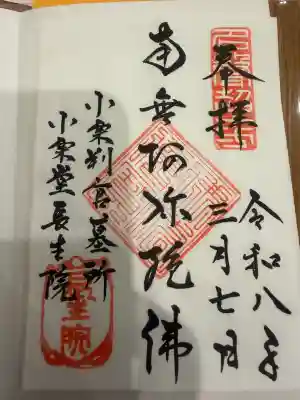 奉拝
令和八年
三月七日
南無阿弥陀佛
小栗判官墓所
小栗堂長生院